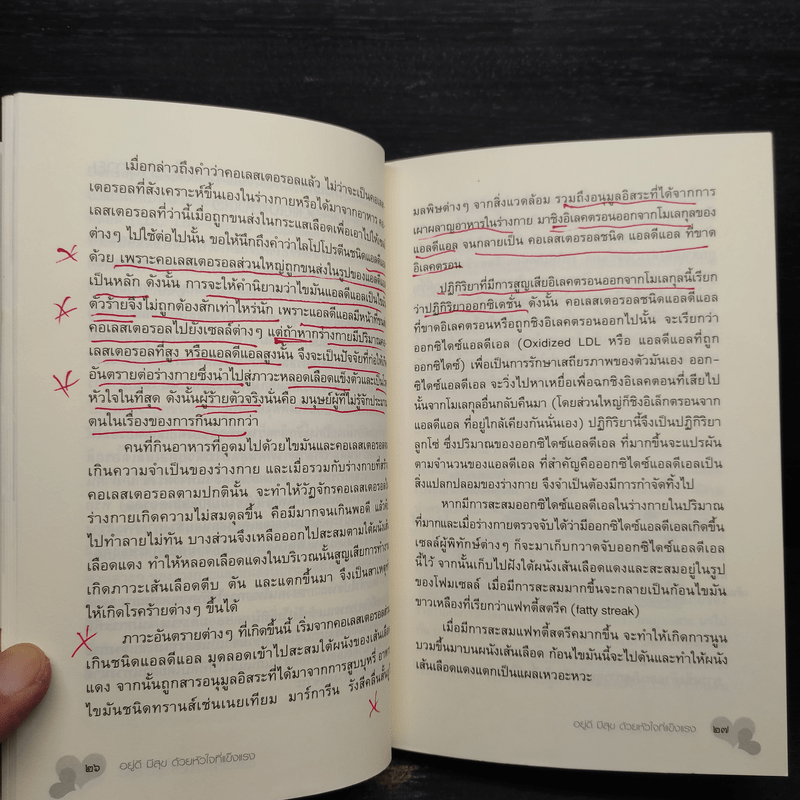 เมื่อกล่าวถึงคำว่าคอเลสเตอรอลแล้ว ไม่ว่าจะเป็นคอเลส
เตอรอลที่สังเคราะห์ขึ้นเองในร่างกายหรือได้มาจากอาหาร
เลสเตอรอลที่ว่านี้เมื่อถูกขนส่งในกระแสเลือดเพื่อเอาไปให้
ต่างๆ ไปใช้ต่อไปนั้น ขอให้นึกถึงคำว่าไลโปโปรตีนชนิดแอลดีแอล
ด้วย เพราะคอเลสเตอรอลส่วนใหญ่ถูกขนส่งในรูปของแอลดีแอล
เป็นหลัก ดังนั้น การจะให้คำนิยามว่าไขมันแอลดีแอลเป็น
ตัวร้ายจึงไม่ถูกต้องสักเท่าไหร่นัก เพราะแอลดีแอลมีหน้าที่ขนส่ง
คอเลสเตอรอลไปยังเซลล์ต่างๆ แต่ถ้าหากร่างกายมีปริมาณ
เลสเตอรอลที่สูง หรือแอลดีแอลสูงนั้น จึงจะเป็นปัจจัยที่ก่อให้
อันตรายต่อร่างกายซึ่งนำไปสู่ภาวะหลอดเลือดแข็งตัวและ
หัวใจในที่สุด ดังนั้นผู้ร้ายตัวจริงนั่นคือ มนุษย์ผู้ที่ไม่รู้จักประมาณ
ตนในเรื่องของการกินมากกว่า
คนที่กินอาหารที่อุดมไปด้วยไขมันและคอเลสเตอรอล
เกินความจำเป็นของร่างกาย และเมื่อรวมกับร่างกายที่
คอเลสเตอรอลตามปกตินั้น จะทำให้วัฏจักรคอเลสเตอรอล
ร่างกายเกิดความไม่สมดุลขึ้น คือมีมากจนเกินพอดี แล้ว
ไปทำลายไม่ทัน บางส่วนจึงเหลือออกไปสะสมตามใต้ผนัง
เลือดแดง ทำให้หลอดเลือดแดงในบริเวณนั้นสูญเสียการทำ
เกิดภาวะเส้นเลือดตีบ ตัน และแตกขึ้นมา จึงเป็นสาเหตุ
ให้เกิดโรคร้ายต่างๆ ขึ้นได้
ภาวะอันตรายต่างๆ ที่เกิดขึ้นนี้ เริ่มจากคอเลสเตอรอล
เกินชนิดแอลดีแอล มุดลอดเข้าไปสะสมใต้ผนังของเส้นเลือด
แดง จากนั้นถูกสารอนุมูลอิสระที่ได้มาจากการสูบบุหรี่
ไขมันชนิดทรานส์เช่นเนยเทียม มาร์การีน รังสีคลื่นสั้น
๒๖ อยู่ดี มีสุข ด้วยหัวใจที่แข็งแรง
มลพิษต่างๆ จากสิ่งแวดล้อม รวมถึงอนุมูลอิสระที่ได้จากการ
เผาผลาญอาหารในร่างกาย มาชิงอิเลคตรอนออกจากโมเลกุลของ
แอลดีแอล จนกลายเป็น คอเลสเตอรอลชนิด แอลดีแอล ที่ขาด
อิเลคตรอน
ปฏิกิริยาที่มีการสูญเสียอิเลคตรอนออกจากโมเลกุลนี้เรียก
ว่าปฏิกิริยาออกซิเดชั่น ดังนั้น คอเลสเตอรอลชนิดแอลดีแอล
ที่ขาดอิเลคตรอนหรือถูกชิงอิเลคตรอนออกไปนั้น จะเรียกว่า
ออกซิไดซ์แอลดีแอล (Oxidized LDL หรือ แอลดีแอลที่ถูก
ออกซิไดซ์) เพื่อเป็นการรักษาเสถียรภาพของตัวมันเอง ออก-
ซิไดซ์แอลดีแอล จะวิ่งไปหาเหยื่อเพื่อฉกชิงอิเลคตอนที่เสียไป
นั้นจากโมเลกุลอื่นกลับคืนมา (โดยส่วนใหญ่ก็ชิงอิเล็กตรอนจาก
แอลดีแอล ที่อยู่ใกล้เคียงกันนั่นเอง) ปฏิกิริยานี้จึงเป็นปฏิกิริยา
ลูกโซ่ ซึ่งปริมาณของออกซิไดซ์แอลดีแอล ที่มากขึ้นจะแปรผัน
ตามจำนวนของแอลดีเอล ที่สำคัญคือออกซิไดซ์แอลดีแอลเป็น
สิ่งแปลกปลอมของร่างกาย จึงจำเป็นต้องมีการกำจัดทิ้งไป
หากมีการสะสมออกซิไดซ์แอลดีแอลในร่างกายในปริมาณ
ที่มากและเมื่อร่างกายตรวจจับได้ว่ามีออกซิไดซ์แอลดีแอลเกิดขึ้น
เซลล์ผู้พิทักษ์ต่างๆ ก็จะมาเก็บกวาดจับออกซิไดซ์แอลดีแอล
นี้ไว้ จากนั้นเก็บไปฝังใต้ผนังเส้นเลือดแดงและสะสมอยู่ในรูป
ของโฟมเซลล์ เมื่อมีการสะสมมากขึ้นจะกลายเป็นก้อนไขมัน
ขาวเหลืองที่เรียกว่าแฟทตี้สตรีค (fatty streak)
เมื่อมีการสะสมแฟทตี้สตรีคมากขึ้น จะทำให้เกิดการนูน
บวมขึ้นมาบนผนังเส้นเลือด ก้อนไขมันนี้จะไปดันและทำให้ผนัง
เส้นเลือดแดงแตกเป็นแผลเหวอะหวะ
อยู่ดี มีสุข ด้วยหัวใจที่แข็งแรง ๒๗